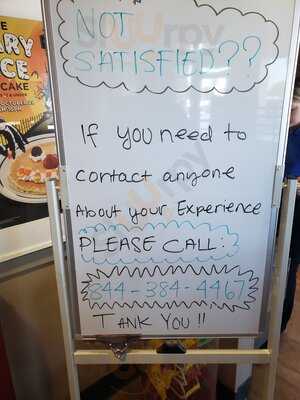 NOT
SATISFIED??
If you need to
contact anyone
About your Experience
PLEASE CALL:
844-384-4467
THANK YOU!!